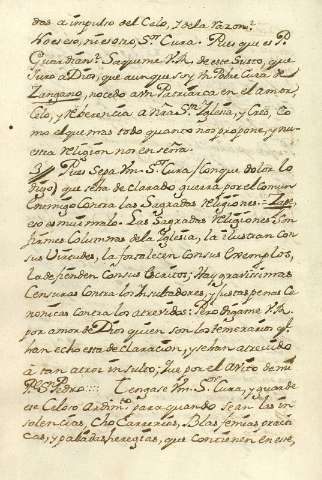 das a impulso del Celo, y de la razon.
No es eso, ni es otro, Sr. Cura. Pues que es P.
Guardian? Saqueme V.R. de este Susto, que
Juro a Dios, que aunque soy Vn Pobre Cura de
Zangano, no cedo a Vn Patriarca en el amor,
Celo, y reverencia a Nra. Sta. Yglesia, y Creo, Co
mo el que mas todo quanto nos propone, y nu-
estra religion nos enseña.
3 Pues Sepa Vm. Sr. Cura (Con que dolor lo
digo) que se ha declarado guerra por el Comun
Enemigo Contra las Sagradas religiones. =
eso es mui malo. Las Sagradas religiones Son
firmes Columnas de la Yglesia, la ilustran Con
sus Virtudes, la fortalecen Con sus Exemplos,
la defienden Con sus Escritos; Hay gravisimas
Censuras Contra los insultadores, y justas penas Ca-
nonicas Contra los atrevidos: Pero digame V.R.
por amor de Dios quien son los temerarios q.
han echo esta declaracion, y se han atrevido
â tan atroz insulto, que por el Avito de mi
P. Sn. Pedro::: Tengase Vm. Sr. Cura, y guarde
ese Celoso Ardim.to para quando Sean las in
solencias, Chocarrerias, Blasfemias practi
cas, y paliadas heregias, que Contienen en ese,